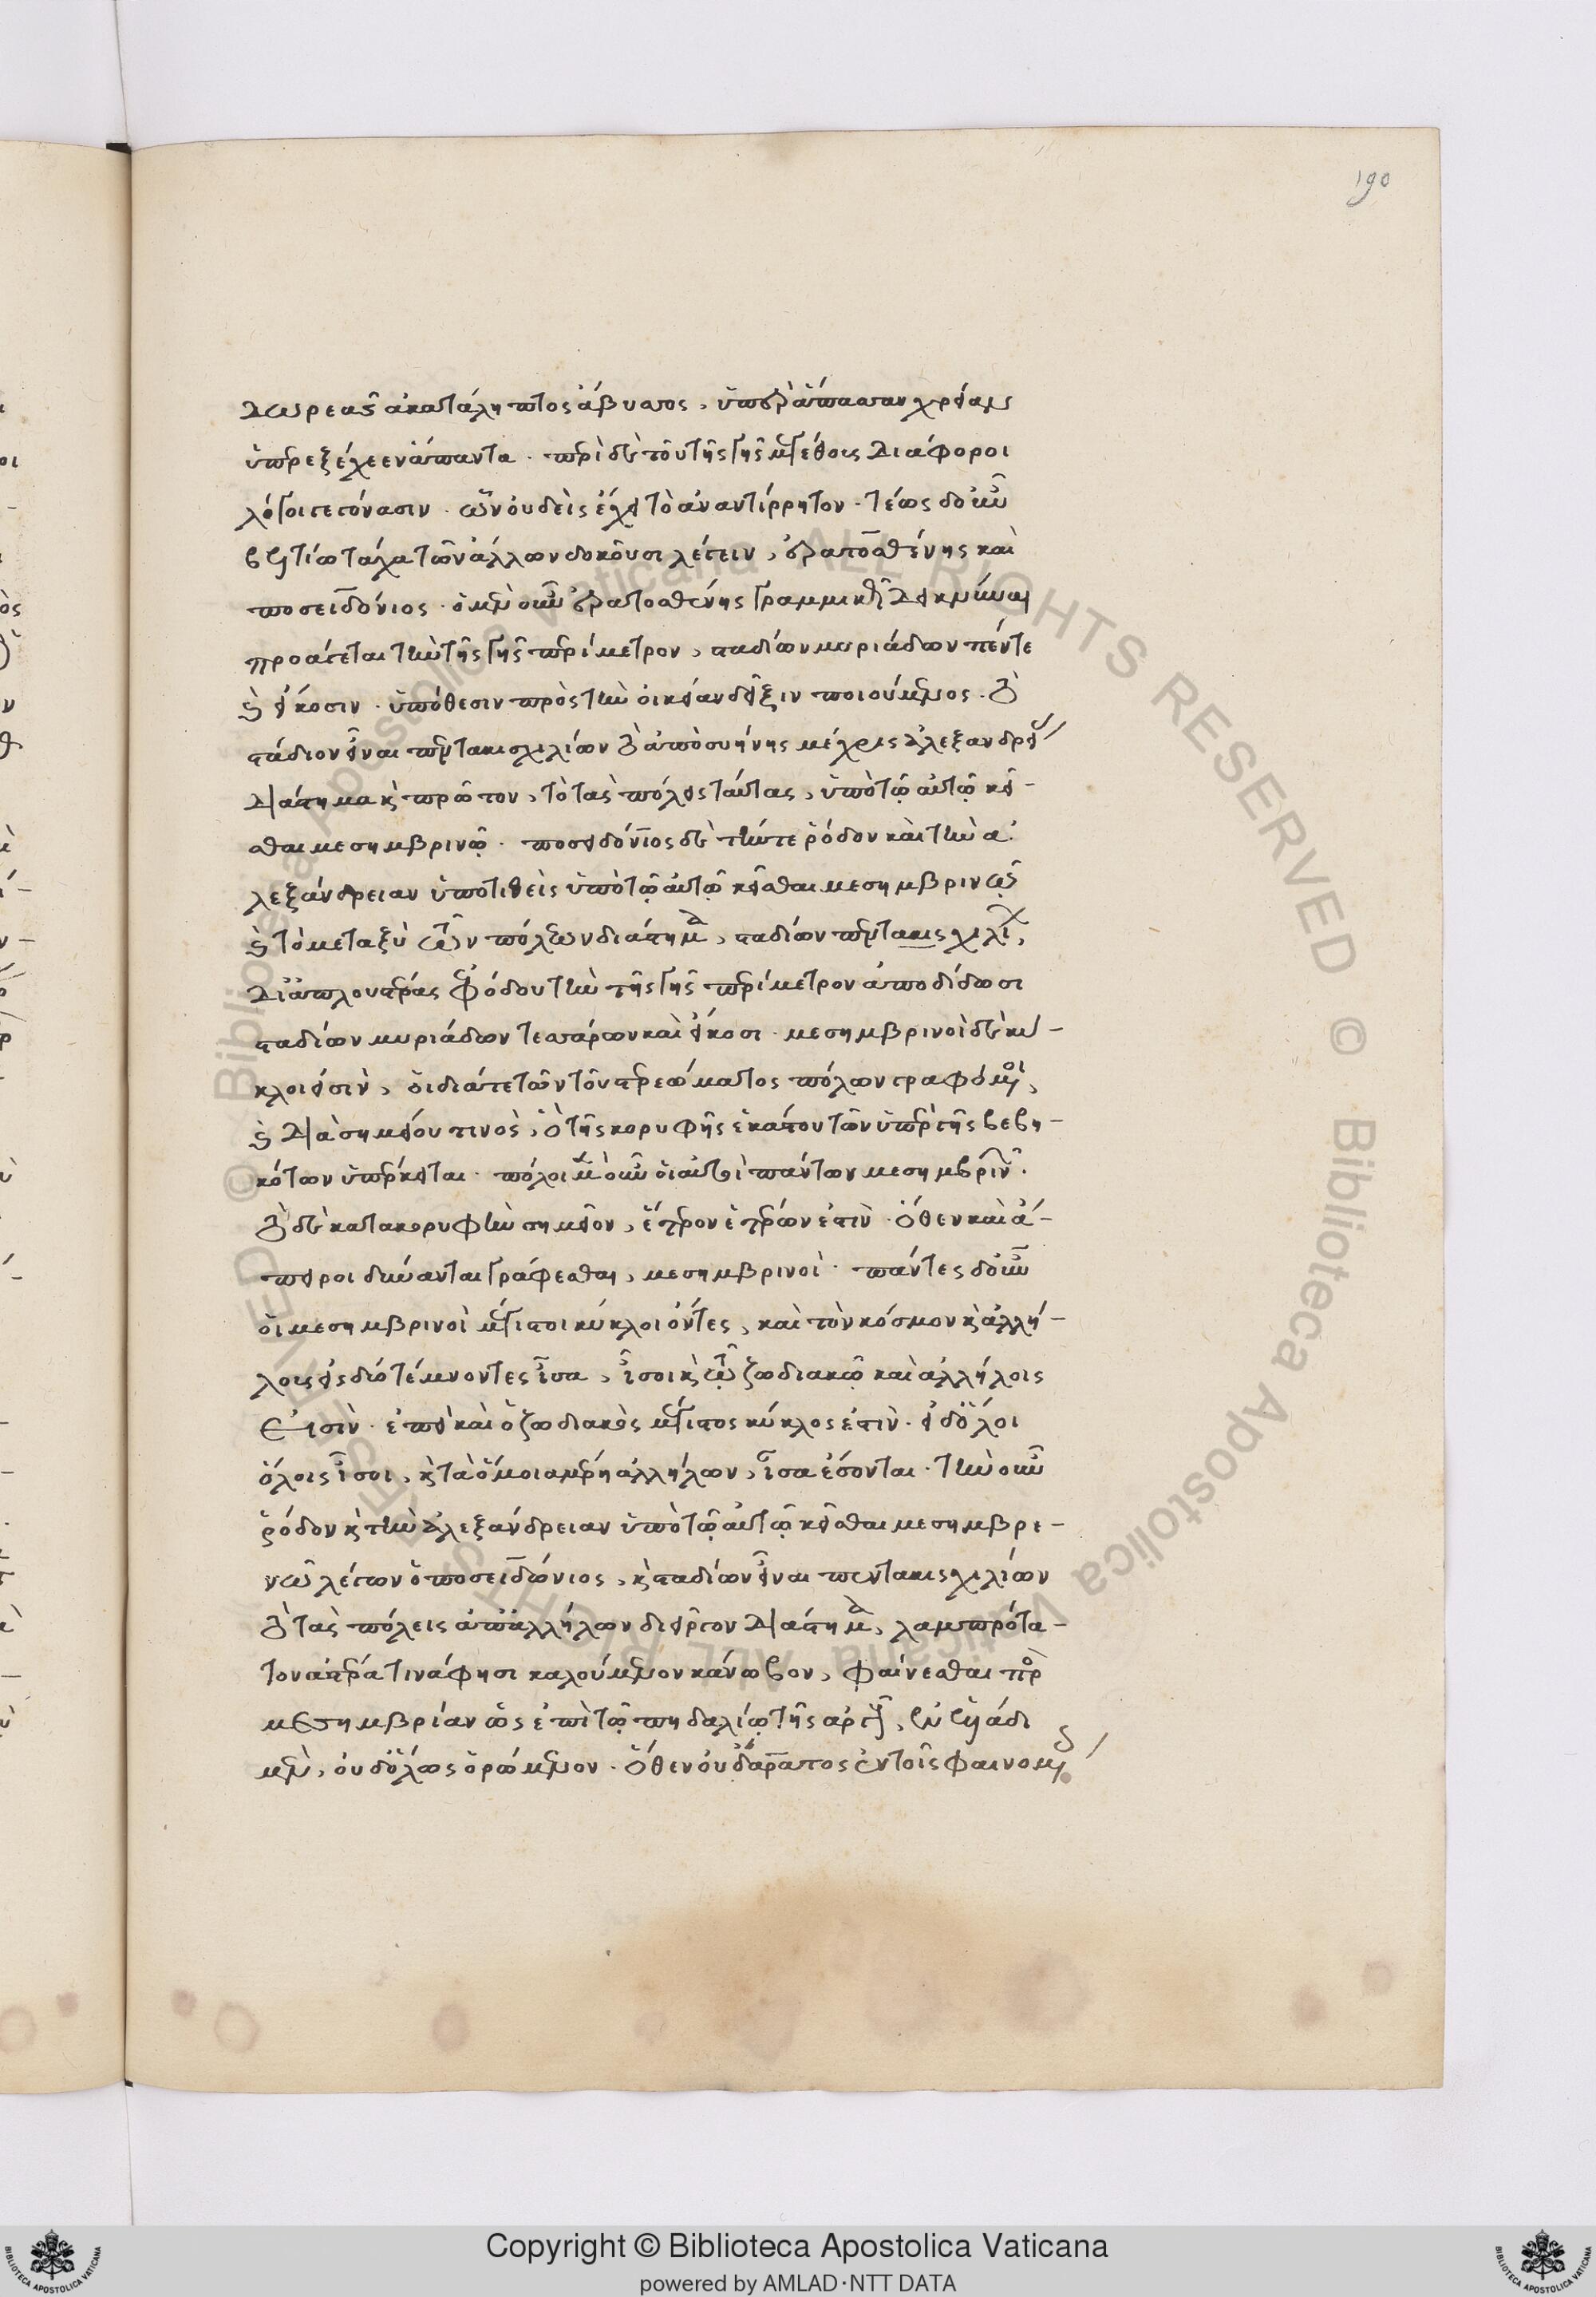 190
δωρεᾶς ἀκατάληπτος ἄβυσσος, ὑπὲρ ἅπασαν χρείαν
ὑπερεξέχεεν ἅπαντα. περὶ δὲ τοῦ τῆς γῆς μεγέθους διάφοροι
λόγοι γεγόνασιν. ὧν οὐδεὶς ἔχει τὸ ἀναντίρρητον. τέως δ' οὖν
βελτίω τάχα τῶν ἄλλων δοκοῦσι λέγειν, ἐρατοσθένης καὶ
ποσειδόνιος. ὁ μὲν οὖν ἐρατοσθένης γραμμικῇ δεικνύναι
προάγεται τὴν τῆς γῆς περίμετρον, σταδίων μυριάδων πέντε
καὶ εἴκοσιν. ὑπόθεσιν πρὸς τὴν οἰκείαν δεῖξιν ποιούμενος. τὸ
στάδιον εἶναι πεντακισχιλίων τὸ ἀπὸ συήνης μέχρις ἀλεξανδρεί
διάστημα καὶ πρῶτον, τὸ τὰς πόλεις ταύτας, ὑπὸ τῷ αὐτῷ κεῖ-
σθαι μεσημβρινῷ. ποσειδόνιος δὲ τήν τε ῥόδον καὶ τὴν ἀ
λεξάνδρειαν ὑποτιθεὶς ὑπὸ τῷ αὐτῷ κεῖσθαι μεσημβρινῷ
καὶ τὸ μεταξὺ τῶν πόλεων διάστημα, σταδίων πεντακισχιλί,
δι' ἁπλουστέρας ἐφόδου τὴν τῆς γῆς περίμετρον ἀποδίδωσι
σταδίων μυριάδων τεσσάρων καὶ εἴκοσι. μεσημβρινοὶ δὲ κύ-
κλοι εἰσὶν, οἱ διά τε τῶν τοῦ στερεώματος πόλων γραφόμενοι,
καὶ διὰ σημείου τινὸς, ὃ τῆς κορυφῆς ἑκάστου τῶν ὑπὲρ γῆς βεβη-
κότων ὑπέρκειται. πόλοι μὲν οὖν οἱ αὐτοὶ πάντων μεσημβριν.
τὸ δὲ κατακορυφὴν σημεῖον, ἕτερον ἑτέρων ἐστὶν. ὅθεν καὶ ἄ-
πειροι δύνανται γράφεσθαι, μεσημβρινοὶ. πάντες δ' οὖν
οἱ μεσημβρινοὶ μέγιστοι κύκλοι ὄντες, καὶ τὸν κόσμον καὶ ἀλλή-
λους εἰς δύο τέμνοντες ἶσα, ἶσοι καὶ τῷ ζωδιακῷ καὶ ἀλλήλοις
εἰσὶν. ἐπεὶ καὶ ὁ ζωδιακὸς μέγιστος κύκλος ἐστὶν. εἰ δ' ὅλοι
ὅλοις ἶσοι, καὶ τὰ ὅμοια μέρη ἀλλήλων, ἶσα ἔσονται. τὴν οὖν
ῥόδον καὶ τὴν ἀλεξάνδρειαν ὑπὸ τῷ αὐτῷ κεῖσθαι μεσημβρι-
νῷ λέγων ὁ ποσειδώνιος, καὶ σταδίων εἶναι πεντακισχιλίων
τὸ τὰς πόλεις ἀπ' ἀλλήλων διεῖργον διάστημα, λαμπρότα-
τον ἀστέρα τινά φησι καλούμενον κάνωβον, φαίνεσθαι πρὸς
μεσημβρίαν ὡς ἐπὶ τῷ πηδαλίῳ τῆς ἀργ, ἐν ἑλλάδι
μὲν, οὐδ' ὅλως ὁρώμενον. ὅθεν οὐδ' ἄρατος ἐν τοῖς φαινομ